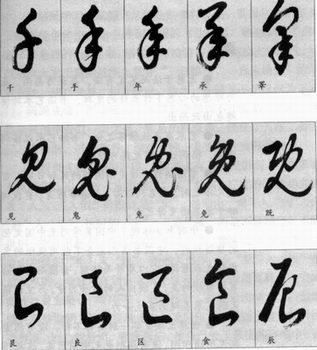 千 手 年 承 睪
見 鬼 兎 免 既
艮 良 区 食 辰